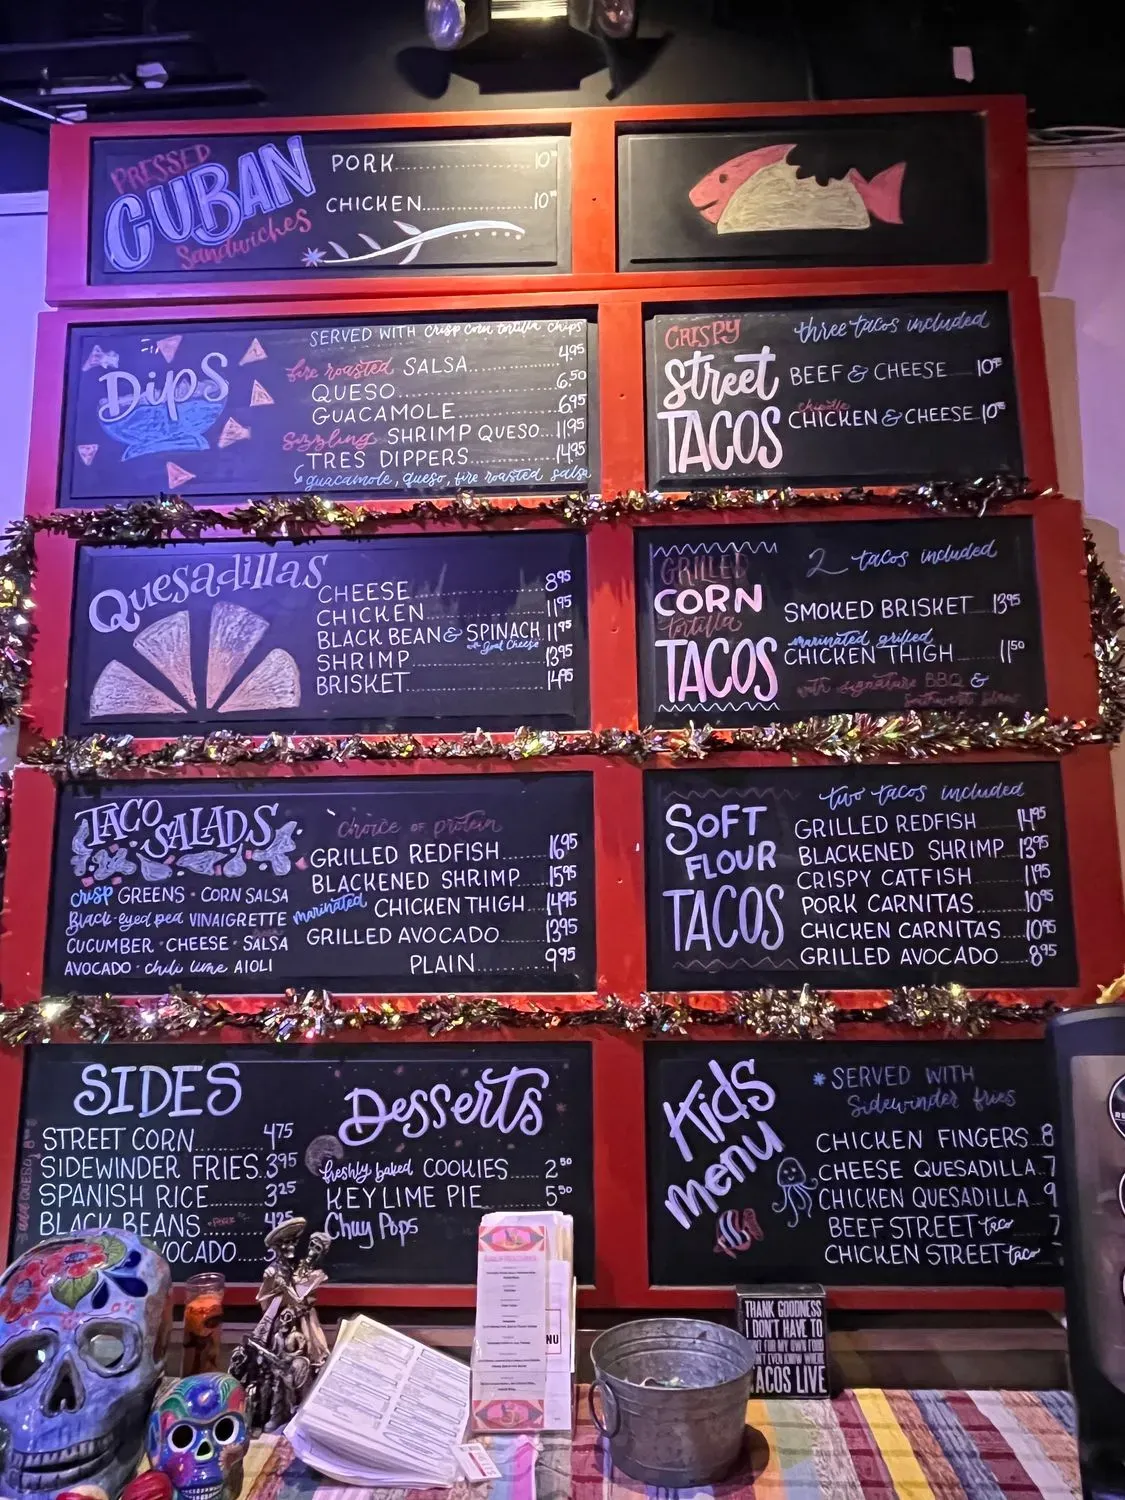 PRESSED
CUBAN
Sandwiches
PORK
CHICKEN
Dips
SERVED WITH crisp corn tortilla chips
fire roasted SALSA 4.95
QUESO 6.50
GUACAMOLE 6.95
Sizzling SHRIMP QUESO 11.95
TRES DIPPERS 14.95
guacamole, queso, fire roasted salsa
CRISPY
Street
TACOS
three tacos included
BEEF & CHEESE
chipotle
CHICKEN & CHEESE
Quesadillas
CHEESE 8.95
CHICKEN 11.95
BLACK BEAN & SPINACH 11.95
with Goat Cheese
SHRIMP 13.95
BRISKET 14.95
GRILLED
CORN
tortilla
TACOS
2 tacos included
SMOKED BRISKET 13.95
marinated grilled
CHICKEN THIGH 11.50
with signature BBQ &
TACO SALADS
crisp GREENS · CORN SALSA
Black-eyed pea VINAIGRETTE
CUCUMBER · CHEESE · SALSA
AVOCADO · chili lime AIOLI
choice of protein
GRILLED REDFISH 16.95
BLACKENED SHRIMP 15.95
marinated CHICKEN THIGH 14.95
GRILLED AVOCADO 13.95
PLAIN 9.95
SOFT
FLOUR
TACOS
two tacos included
GRILLED REDFISH 14.95
BLACKENED SHRIMP 13.95
CRISPY CATFISH 11.95
PORK CARNITAS 10.95
CHICKEN CARNITAS 10.95
GRILLED AVOCADO 8.95
SIDES
STREET CORN 4.75
SIDEWINDER FRIES 3.95
SPANISH RICE 3.25
BLACK BEANS 4.25
VOCADO
Desserts
freshly baked COOKIES 2.50
KEY LIME PIE 5.50
Chuy Pops
Kids
menu
* SERVED WITH
Sidewinder fries
CHICKEN FINGERS 8
CHEESE QUESADILLA 7
CHICKEN QUESADILLA 9
BEEF STREET taco 7
CHICKEN STREET taco
NU
THANK GOODNESS
I DON'T HAVE TO
FOR MY OWN FOOD
EVEN KNOW WHERE
TACOS LIVE